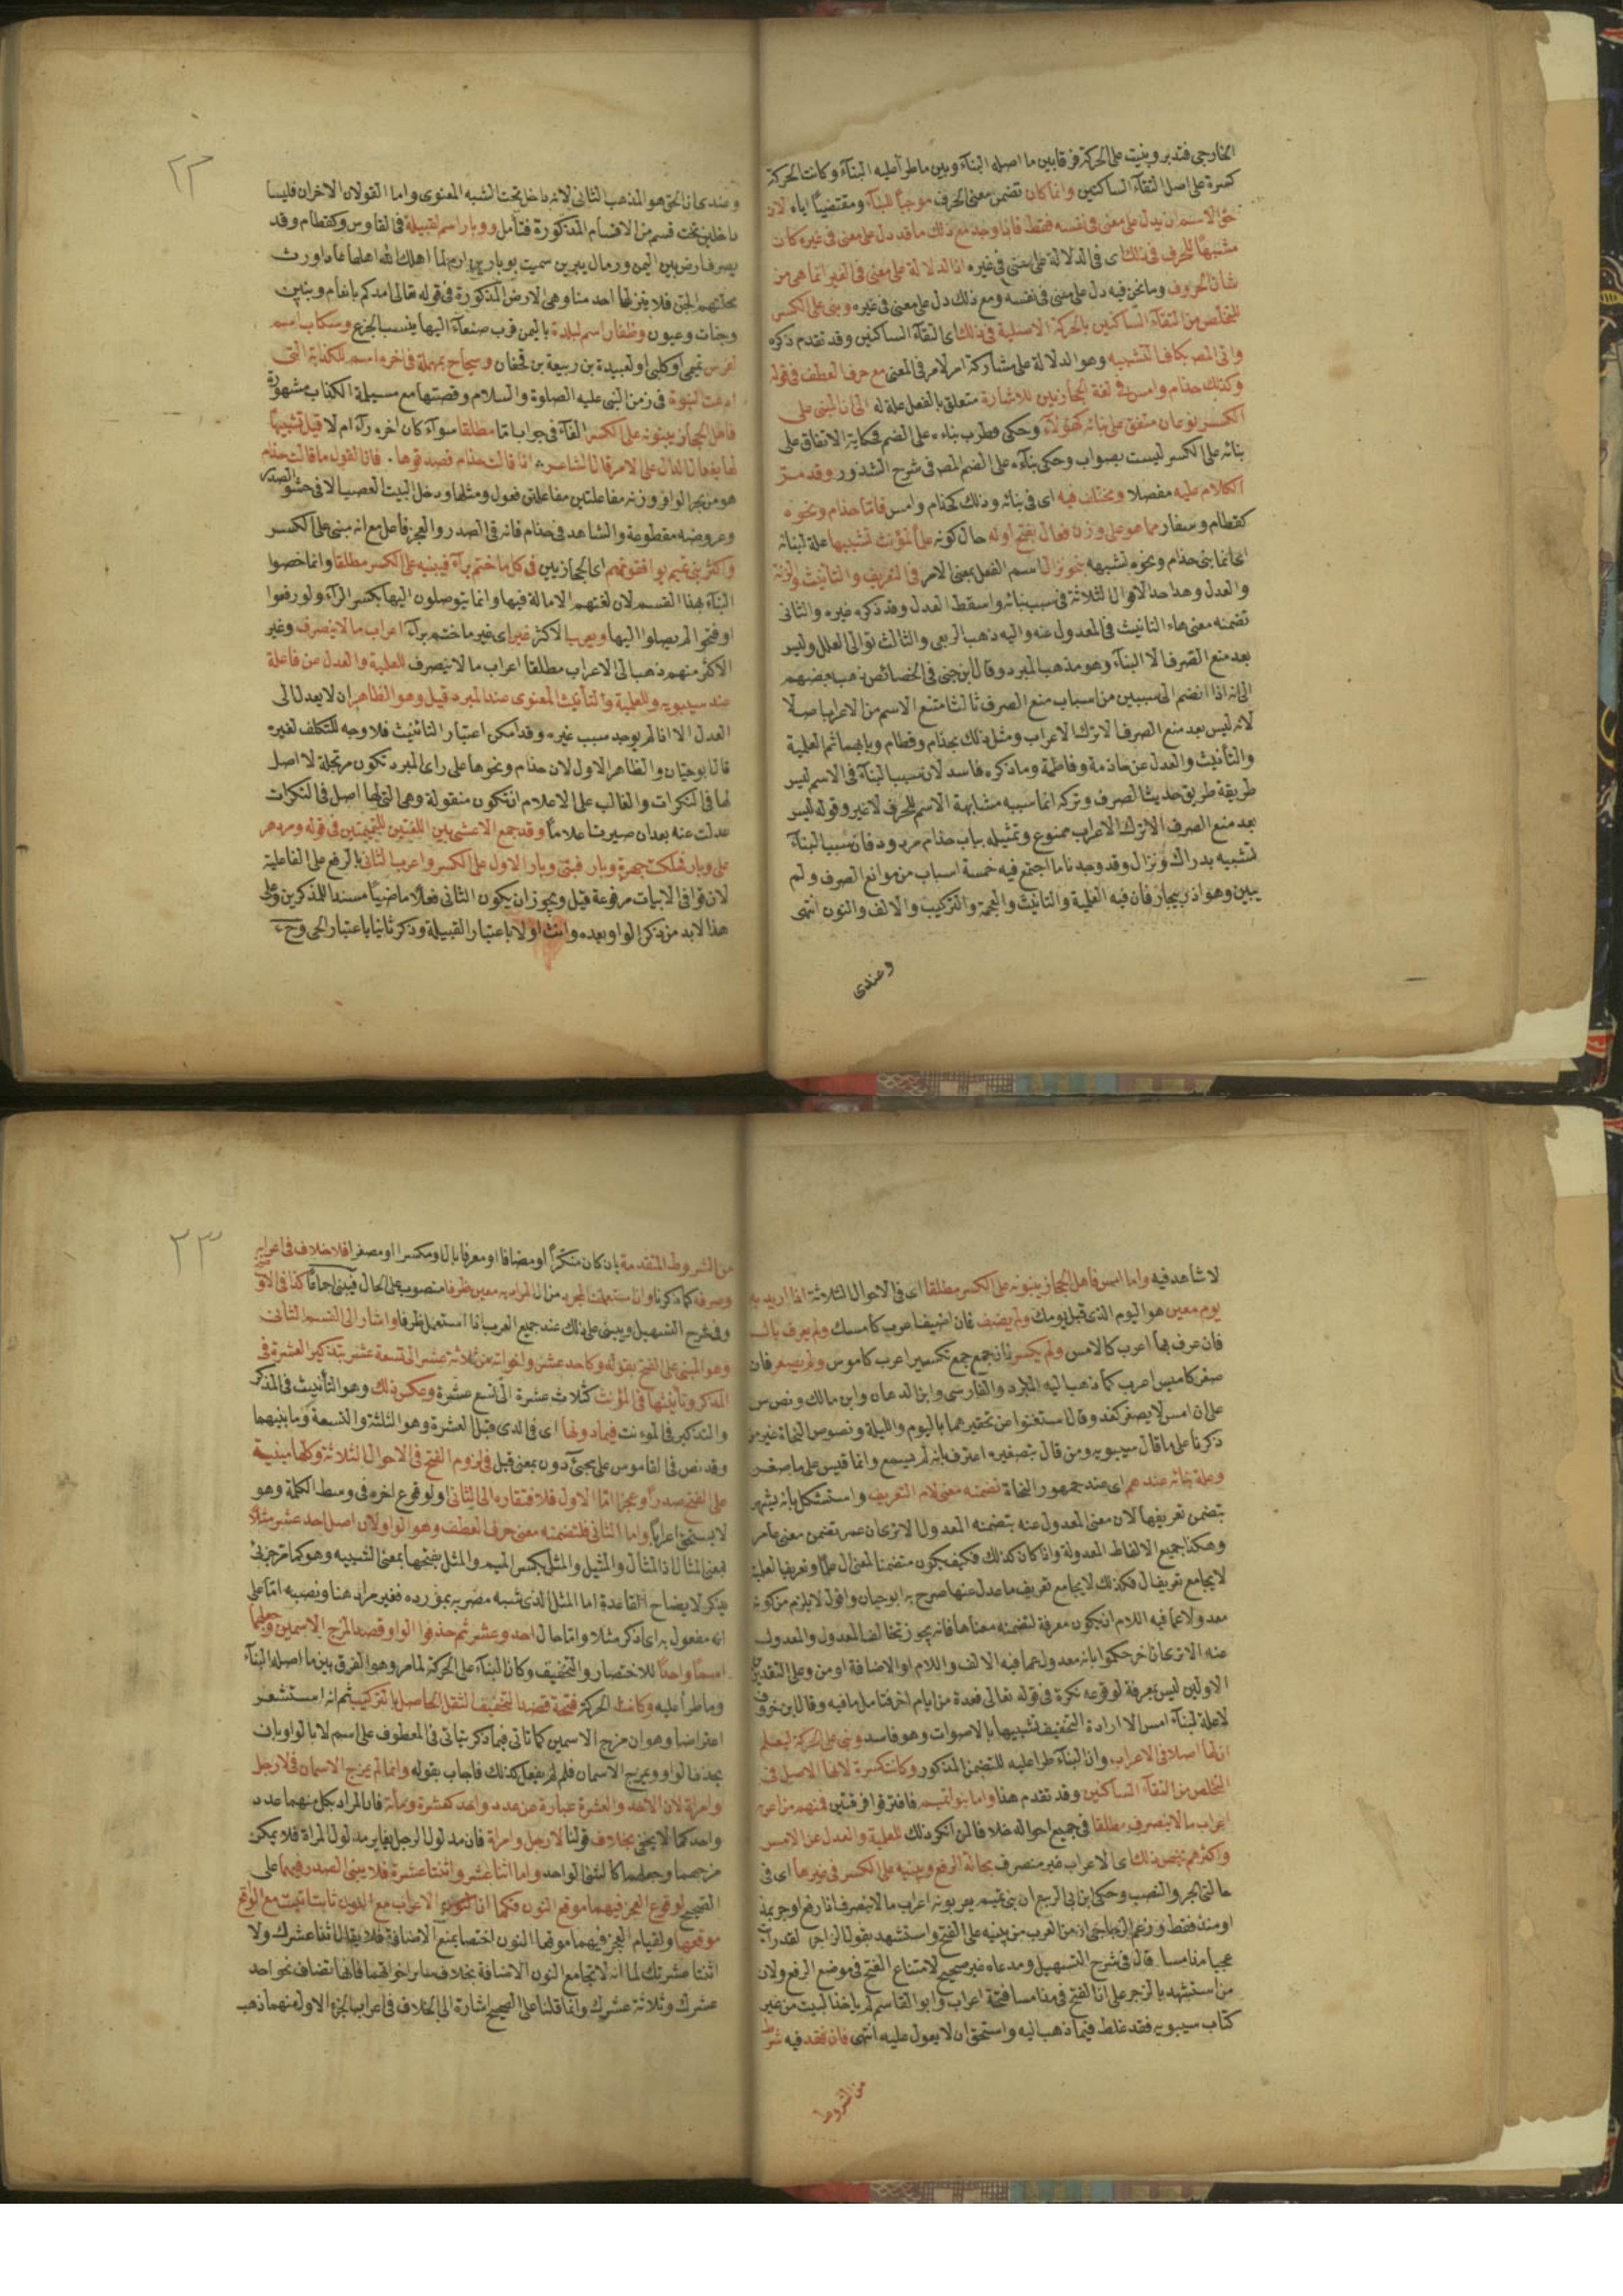 الخارجى فتدبر وبنيت على الحركة فرقا بين ما اصله البناء وبين ما طرأ عليه البناء وكانت الحركة
كسرة على اصل التقاء الساكنين وانما كان تضمن معنى الحرف موجبا للبناء ومقتضيا اياه لان
حق الاسم ان يدل على معنى فى نفسه فقط فاذا وجد مع ذلك ما قد دل على معنى فى غيره كان
مشبها للحرف فى ذلك اى فى الدلالة على معنى فى غيره اذ الدلالة على معنى فى الغير انما هى من
شان الحروف وما نحن فيه دل على معنى فى نفسه ومع ذلك دل على معنى فى غيره وبنى على الكسر
للتخلص من التقاء الساكنين بالحركة الاصلية فى ذلك اى التقاء الساكنين وقد تقدم ذكره
واتى المصر بكاف التشبيه وهو الدلالة على مشاركة امر لامر فى المعنى مع حرف العطف فى قوله
وكذلك حذام وامس فى لغة الحجازيين للاشارة متعلق بالفعل علة له الى ان المبنى على
الكسر نوعان متفق على بنائه كهؤلاء وحكى قطرب بناءه على الضم فحكاية الاتفاق على
بنائه على الكسر ليست بصواب وحكى بناءه على الضم المصر فى شرح الشذور وقد مر
الكلام عليه مفصلا ومختلف فيه اى فى بنائه وذلك كحذام وامس فاما حذام ونحوه
كقطام وسفار مما هو على وزن فعال بفتح اوله حال كونه علم المؤنث تشبيها علة لبنائه
اى انما بنى حذام ونحوه لشبهه بنحو نزال اسم الفعل بمعنى الامر فى التعريف والتانيث والزنة
والعدل وهذا احد الاقوال الثلاثة فى سبب بنائه واسقط العدل وقد ذكره غيره والثانى
تضمنه معنى هاء التانيث فى المعدول عنه واليه ذهب الربعى والثالث توالى العلل وليس
بعد منع الصرف الا البناء وهو مذهب المبرد وقال ابن جنى فى الخصائص ذهب بعضهم
الى انه اذا انضم الى سببين من اسباب منع الصرف ثالث امتنع الاسم من الاعراب اصلا
لانه ليس بعد منع الصرف الا ترك الاعراب ومثل ذلك بحذام وقطام وبابهما ثم العلمية
والتأنيث والعدل عن حاذمة وفاطمة وما ذكره فاسد لان سبب البناء فى الاسم ليس
طريقة طريق حديث الصرف وتركه انما سببه مشابهة الاسم للحرف لا غير وقوله ليس
بعد منع الصرف الا ترك الاعراب ممنوع وتمثيله بباب حذام مردود فان سبب البناء
تشبيه بدراك ونزال وقد وجدنا ما اجتمع فيه خمسة اسباب من موانع الصرف ولم
يبين وهو اذربيجان فان فيه العلمية والتانيث والعجمة والتركيب والالف والنون انتهى
وعندى
٢٢
وعندى ان الحق هو المذهب الثانى لانه داخل تحت الشبه المعنوى واما القولان الاخران فليسا
داخلين تحت قسم من الاقسام المذكورة فتأمل ووبار اسم لقبيلة فى القاموس وكقطام وقد
يصرف ارض بين اليمن ورمال يبرين سميت بوبار بن ارم لما اهلك الله اهلها عادا ورث
محلتهم الجن فلا ينزلها احد منا وهى الارض المذكورة فى قوله تعالى امدكم بانعام وبنين
وجنات وعيون وظفار اسم لبلدة باليمن قرب صنعاء اليها ينسب الجزع وسكاب اسم
لفرس تميمى او كلبى او لعبيدة بن ربيعة بن قحفان وسجاح بمهملة فى اخره اسم للكذابة التى
ادعت النبوة فى زمن النبى عليه الصلوة والسلام وقصتها مع مسيلمة الكذاب مشهورة
فاهل الحجاز يبنونه على الكسر الفاء فى جواب اما مطلقا سواء كان اخره راء ام لا قيل تشبيها
لها بفعال الدال على الامر قال الشاعر اذا قالت حذام فصدقوها فان القول ما قالت حذام
هو من بحر الوافر وزنه مفاعلتين مفاعلتن فعول ومثلها ودخل البيت العصب الا فى حشو الصدر
وعروضه مقطوعة والشاهد فى حذام فانه فى الصدر والعجز فاعل مع انه مبنى على الكسر
واكثر بنى تميم يوافقونهم اى الحجازيين فى كل ما ختم براء فيبنيه على الكسر مطلقا وانما خصوا
البناء بهذا القسم لان لغتهم الامالة فيها وانما يتوصلون اليها بكسر الراء ولو رفعوا
او فتحوا لم يصلوا اليها ويعرب الاكثر غير اى غير ما ختم براء اعراب ما لا ينصرف وغير
الاكثر منهم ذهب الى الاعراب مطلقا اعراب ما لا ينصرف للعلمية والعدل عن فاعلة
عند سيبويه وللعلمية والتأنيث المعنوى عند المبرد قيل وهو الظاهر ان لا يعدل الى
العدل الا اذا لم يوجد سبب غيره وقد امكن اعتبار التانيث فلا وجه للتكلف لغيره
قال ابو حيان والظاهر الاول لان حذام ونحوها على راى المبرد تكون مرتجلة لا اصل
لها فى النكرات والغالب على الاعلام ان تكون منقولة وهى التى لها اصل فى النكرات
عدلت عنه بعد ان صيرت اعلاما وقد جمع الاعشى بين اللغتين التميميتين فى قوله ومر دهر
على وبار فهلكت جهرة وبار فبنى وبار الاول على الكسر واعرب الثانى بالرفع على الفاعلية
لان قوافى الابيات مرفوعة قيل ويجوز ان يكون الثانى فعلا ماضيا مسندا للمذكرين وعلى
هذا لابد من ذكر الواو بعده وانث اولا باعتبار القبيلة وذكر ثانيا باعتبار الحى وح
لا شاهد فيه واما امس فاهل الحجاز يبنونه على الكسر مطلقا اى فى الاحوال الثلاثة اذا اريد به
يوم معين هو اليوم الذى قبل يومك ولم يضف فان اضيف اعرب كامسك ولم يعرف بال
فان عرف بها اعرب كالامس ولم يكسر فان جمع جمع تكسير اعرب كاموس ولم يصغر فان
صغر كاميس اعرب كما ذهب اليه المبرد والفارسى وابن الدهان وابن مالك ونص س
على ان امس لا يصغر كغد وقال استغنوا عن تحقيرهما باليوم والليلة ونصوص النحاة غير من
ذكرنا على ما قال سيبويه ومن قال بتصغيره اعترف بانه لم يسمع وانما قيس على ما صغر
وعلة بنائه عندهم اى عند جمهور النحاة تضمنه معنى لام التعريف واستشكل بانه يشهر
بتضمن تعريفها لان معنى المعدول عنه يتضمنه المعدول الا ترى ان عمر تضمن معنى عامر
وهكذا جميع الالفاظ المعدولة واذا كان كذلك فكيف يكون متضمنا لمعنى ال علما وتعريف العلمية
لا يجامع تعريف ال فكذلك لا يجامع تعريف ما عدل عنها صرح به ابو حيان واقول لا يلزم من كونه
معدولا عما فيه اللام ان يكون معرفة لتضمنه معناها فانه يجوز تخالف المعدول والمعدول
عنه الا ترى ان اخر حكموا بانه معدول عما فيه الالف واللام او الاضافة او من وعلى التقدير
الاولين ليس بمعرفة لوقوعه نكرة فى قوله تعالى فعدة من ايام اخر فتامل ما فيه وقال ابن خروف
لا علة لبناء امس الا ارادة التخفيف تشبيها بالاصوات وهو فاسد وبنى على الحركة ليعلم
ان لها اصلا فى الاعراب وان البناء طرا عليه للتضمن المذكور وكانت كسرة لانها الاصل فى
التخلص من التقاء الساكنين وقد تقدم هذا واما بنو تميم فافترقوا فرقتين فمنهم من اعربه
اعراب ما لا ينصرف مطلقا فى جميع احواله خلافا لمن انكر ذلك للعلمية والعدل عن الامس
واكثرهم يخص ذلك اى الاعراب غير منصرف بحالة الرفع ويبنيه على الكسر فى غيرها اى فى
حالتى الجر والنصب وحكى ابن ابى الربيع ان بنى تميم يعربونه اعراب ما لا ينصرف اذا رفع او جر بمذ
او منذ فقط وزعم الزجاجى ان من العرب من يبنيه على الفتح واستشهد بقول الراجز لقد رايت
عجبا مذ امسا قال فى شرح التسهيل ومدعاه غير صحيح لامتناع الفتح فى موضع الرفع ولان
من استشهد بالزجر على ان الفتح فى مذ امسا فتحة اعراب وابو القاسم لم ياخذ البيت من غير
كتاب سيبويه فقد غلط فيما ذهب اليه واستحق ان لا يعول عليه انتهى فان فقد فيه شرط
من الشروط
٢٣
من الشروط المتقدمة بان كان منكرا او مضافا او معرفا بال او مكسرا او مصغرا فلا خلاف فى اعرابه
وصرفه كما ذكرنا وان استعملت المجرد من ال المراد به معين ظرفا منصوب على الحال فبنى اجماعا كذا فى الاو
وفى شرح التسهيل ويبنى على ذلك عند جميع العرب اذا استعمل ظرفا واشار الى القسم الثانى
وهو المبنى على الفتح بقوله وكاحد عشر واخواته من ثلاثة عشر الى تسعة عشر بتذكير العشرة فى
المذكر وتأنيثها فى المؤنث كثلاث عشرة الى تسع عشرة وعكس ذلك وهو التأنيث فى المذكر
والتذكير فى المؤنث فيما دونها اى فى الذى قبل العشرة وهو الثلثة والتسعة وما بينهما
وقد نص فى القاموس على مجئ دون بمعنى قبل فى لزوم الفتح فى الاحوال الثلاثة وكلها مبنية
على الفتح صدرا وعجزا اما الاول فلافتقاره الى الثانى او لوقوع اخره فى وسط الكلمة وهو
لا يستحق اعرابا واما الثانى فلتضمنه معنى حرف العطف وهو الواو لان اصل احد عشر مثلا
بمعنى المثال اذ المثال والمثيل والمثل بكسر الميم والمثل بفتحها بمعنى الشبيه وهو كما مر جزئى
يذكر لايضاح القاعدة اما المثل الذى شبه مضربه بمورده فغير مراد هنا ونصبه اما على
انه مفعول به اى اذكر مثلا واما حال احد وعشر ثم حذفوا الواو قصدا لمزج الاسمين وجعلهما
اسما واحدا للاختصار والتخفيف وكان البناء على الحركة لما مر وهو الفرق بين ما اصله البناء
وما طرأ عليه وكانت الحركة فتحة قصدا لتخفيف الثقل الحاصل بالتركيب ثم انه استشعر
اعتراضا وهو ان مزج الاسمين كما تاتى فيما ذكر يتاتى فى المعطوف على اسم لا بالواو بان
يحذف الواو ويمزج الاسمان فلم لم يفعل كذلك فاجاب بقوله وانما لم يمزج الاسمان فى لا رجل
وامراة لان الاحد والعشرة عبارة عن عدد واحد كعشرة ومائة فان المراد بكل منهما عدد
واحد كما لا يخفى بخلاف قولنا لا رجل وامراة فان مدلول الرجل يغاير مدلول المراة فلا يمكن
مزجهما وجعلهما كالشئ الواحد واما اثنا عشر واثنتا عشرة فلا يبنى الصدر فيهما على
الصحيح لوقوع العجز فيهما موقع النون فكما ان الاعراب مع النون ثابتا تثبت مع الواقع
موقعها ولقيام العجز فيهما موقع النون اختصا بمنع الاضافة فلا يقال اثنا عشرك ولا
اثنتا عشرتك لما انه لا تجامع النون الاضافة بخلاف سائر اخواتهما فانها تضاف نحو احد
عشرك وثلاثة عشرك وانما قلنا على الصحيح اشارة الى الخلاف فى اعراب الجزء الاول منهما ذهب